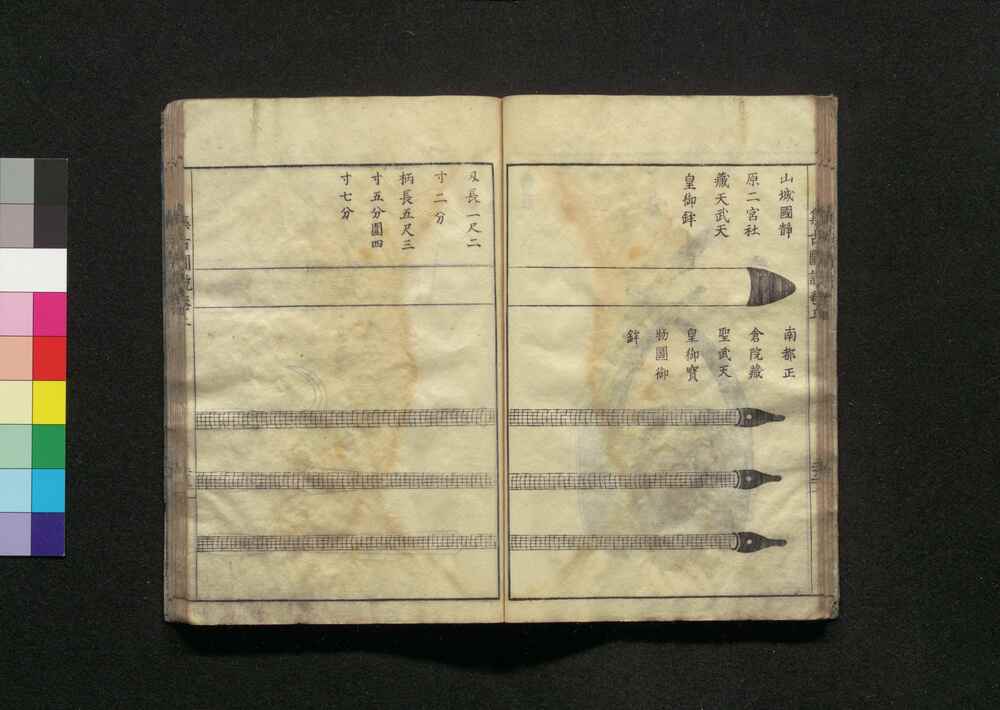 山城國靜
原二宮社
藏天武天
皇御鉾
南都正
倉院藏
聖武天
皇御寳
物圖御
鉾
刄長一尺二
寸二分
柄長五尺三
寸五分圍四
寸七分
集古圖說卷上